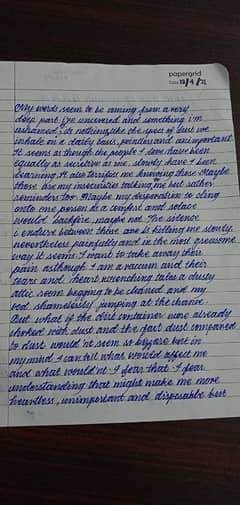 papergrid
Date: 13/4/21
My words seem to be coming from a very
deep part I've uncovered and something I'm
ashamed, its nothing like the specs of dust we
inhale on a daily basis, pointless and unimportant
It seems as though the people I love have been
equally as secretive as me, slowly have I been
learning. It also terrifies me knowing those Maybe
those are my insecurities talking me but rather
reminders too. Maybe my desperation to cling
onto one person as a comfort and solace
would backfire, maybe not. The silence
I endure between these are is killing me slowly
nevertheless painfully and in the most gruesome
way it seems. I want to take away their
pain although I am a vacuum and their
tears and heart wrenching tales a dusty
attic seem begging to be cleaned and my
bod shamelessly jumping at the chance.
But what if the dirt container were already
choked with dust and the fact dust compared
to dust would'nt seem so bizzare but in
my mind I can tell what would affect me
and what would'nt. I fear that. I fear
understanding that might make me more
heartless, unimportant and disposable but